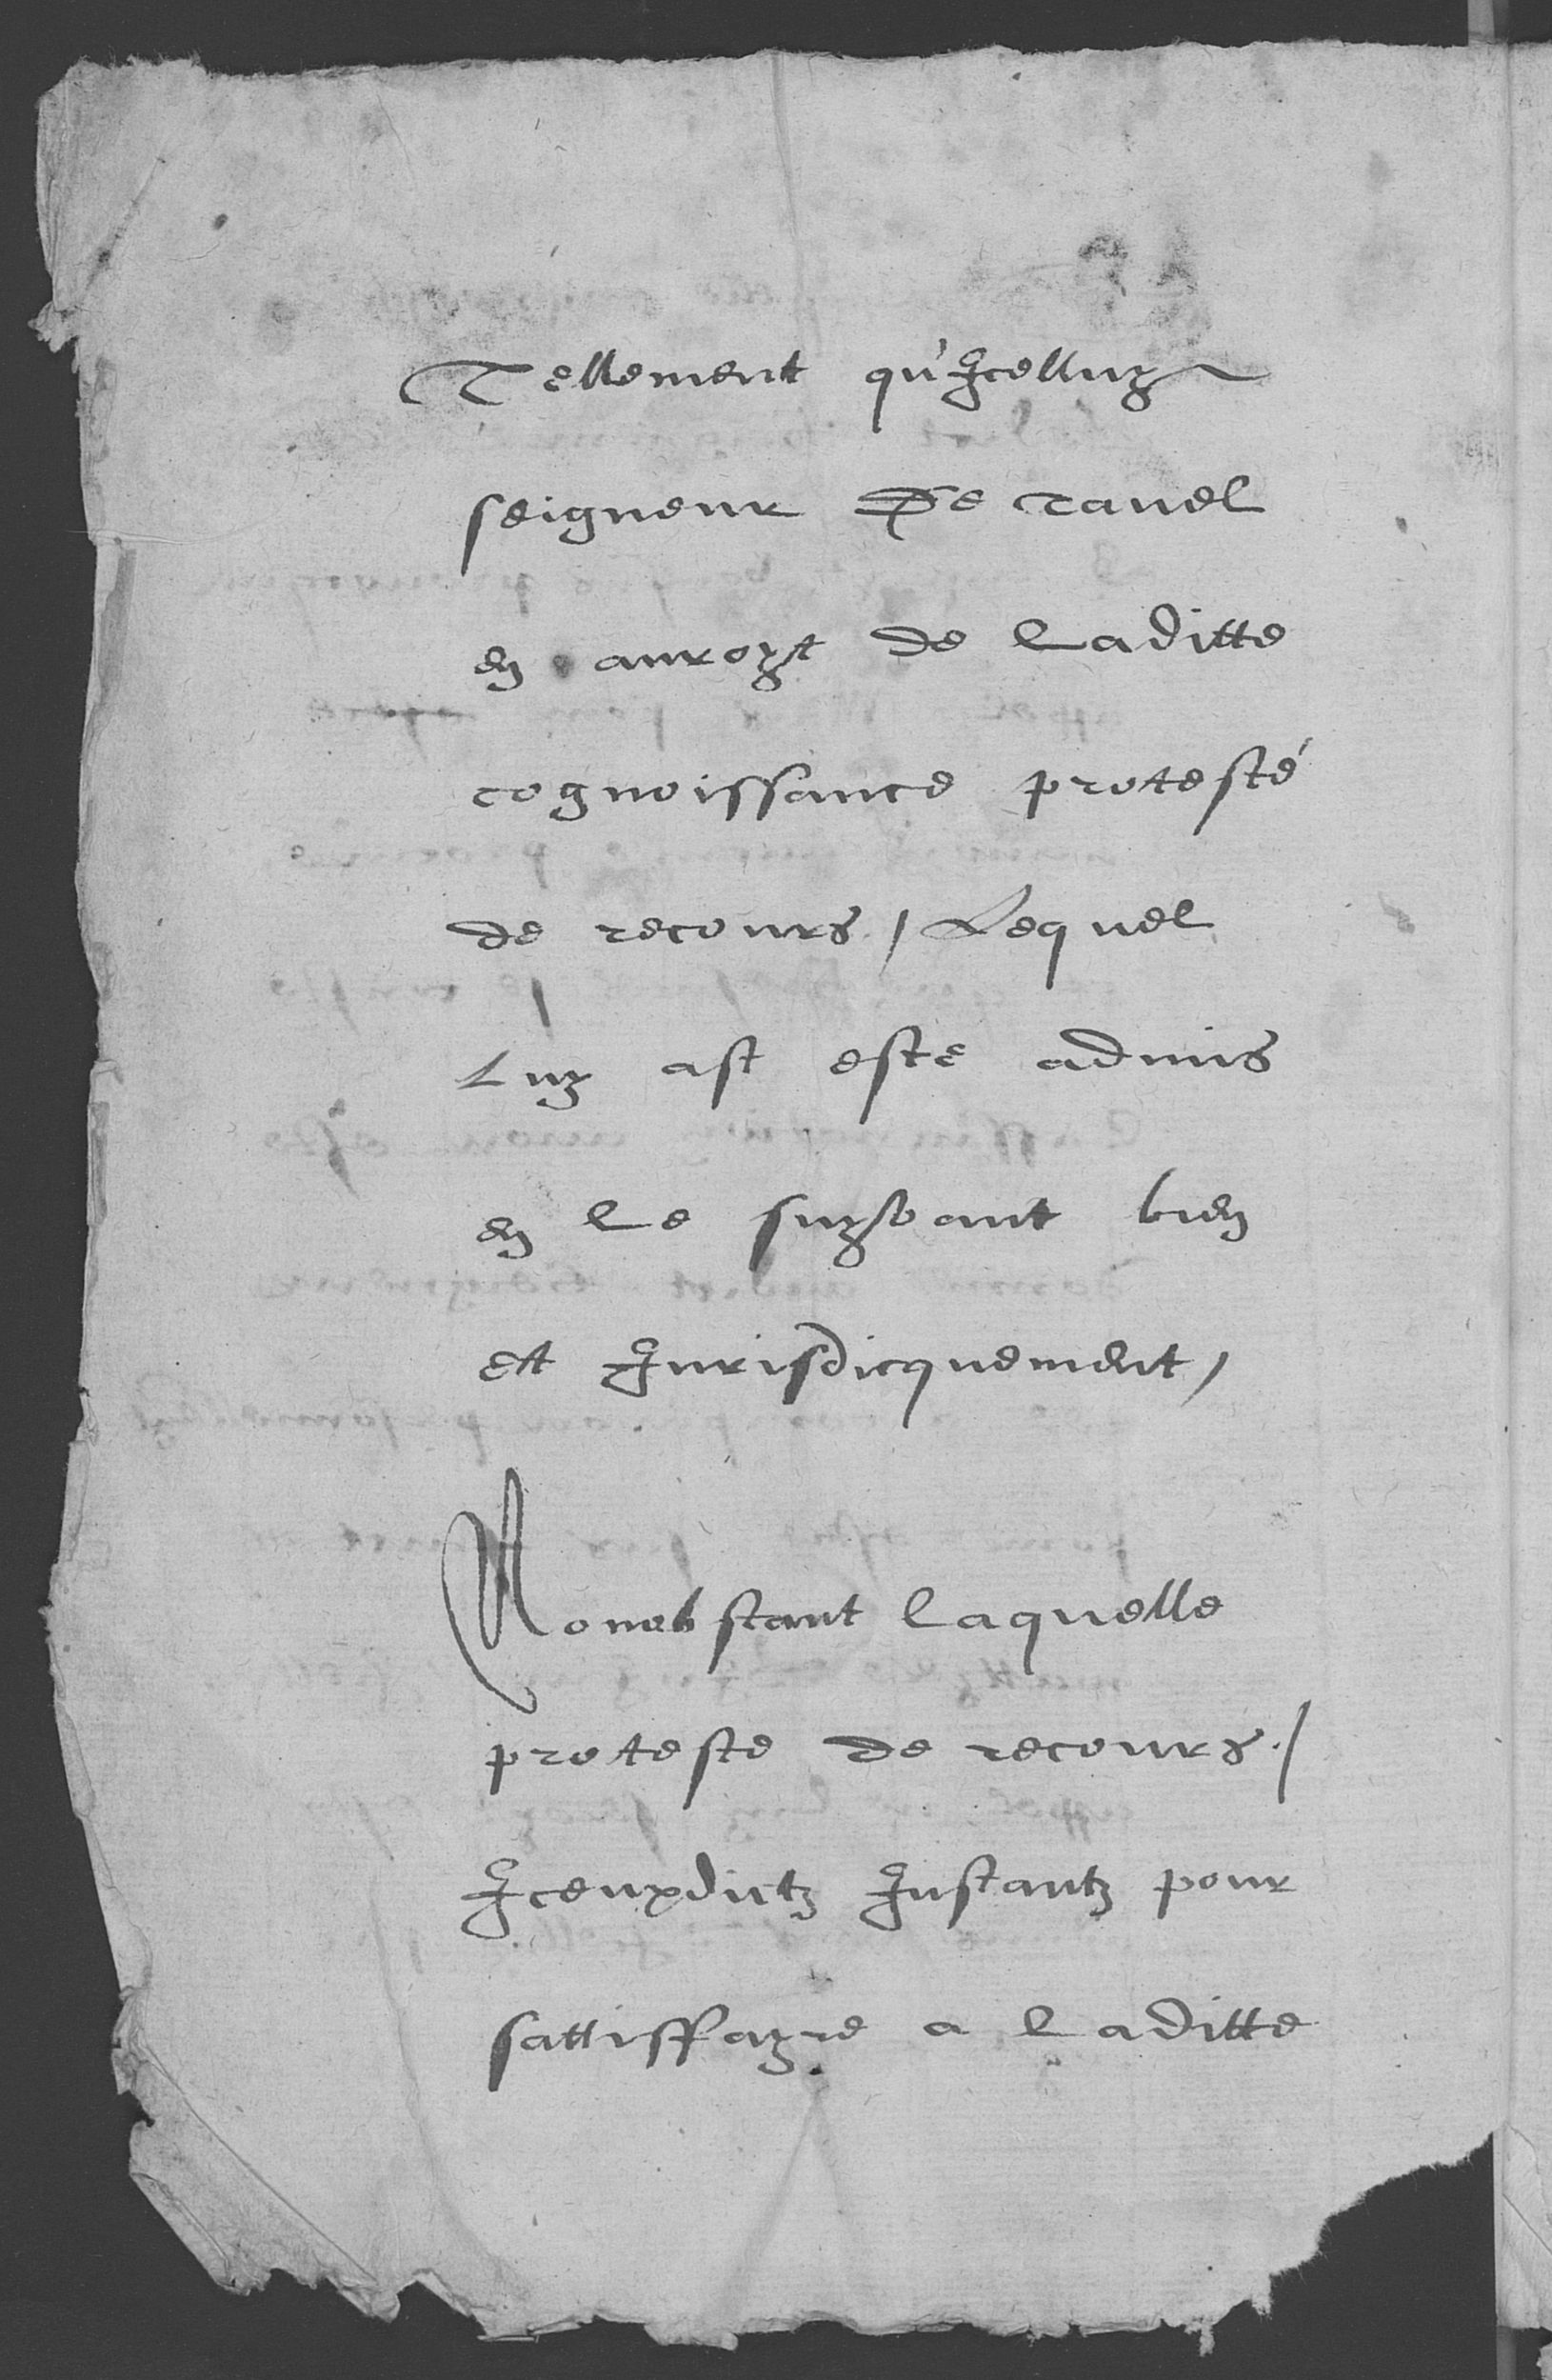 Tellement qu'Icelluy
seigneur De Tavel
en auroyt de Laditte
cognoissance protesté
de recours / Lequel
Luy ast esté admis
en Le suyvant bien
ett Jurisdicquement,
Nonobstant Laquelle
proteste de recours /
Iceuxdictz Instantz pour
sattisffayre a Laditte